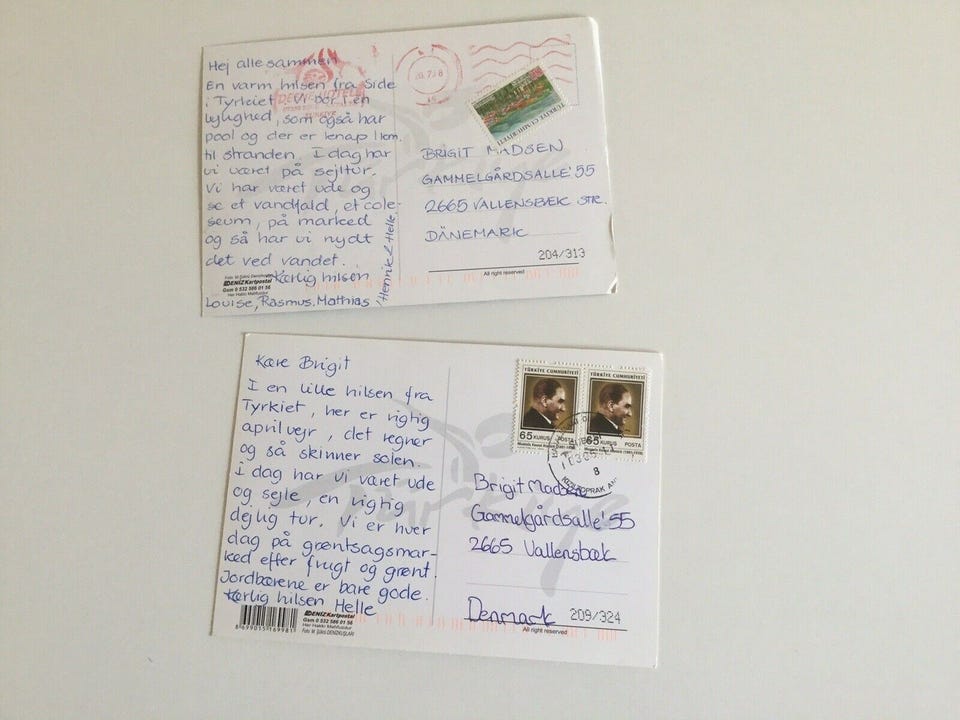 Hej alle sammen
En varm hilsen fra Side
i Tyrkiet. Vi bor i en
lejlighed, som også har
pool og der er knap 1 km.
til stranden. I dag har
vi været på sejltur.
Vi har været ude og
se et vandfald, et cole-
seum, på marked
og så har vi nydt
det ved vandet.
Kærlig hilsen
Louise, Rasmus, Mathias
Henrik & Helle
Foto: M.Şükrü
DENİZ Kartpostal
Gsm 0 532 586 01 56
Her Hakkı Mahfuzdur
DENİZ HOTELS
TÜRKİYE CUMHURİYETİ
BRIGIT MADSEN
GAMMELGÅRDSALLE' 55
2665 VALLENSBÆK STR.
DÄNEMARK
204/313
All right reserved
Kære Brigit
I en lille hilsen fra
Tyrkiet, her er rigtig
aprilvejr, det regner
og så skinner solen.
I dag har vi været ude
og sejle, en rigtig
dejlig tur. Vi er hver
dag på grøntsagsmar-
ked efter frugt og grønt.
Jordbærene er bare gode.
Kærlig hilsen Helle
8 699015 169981
DENİZ Kartpostal
Gsm 0 532 586 01 56
Her Hakkı Mahfuzdur
Foto: M. Şükrü DENİZKUŞLARI
TÜRKİYE CUMHURİYETİ
65 KURUŞ POSTA
TÜRKİYE CUMHURİYETİ
65 KURUŞ POSTA
8
Brigit Madsen
Gammelgårdsalle' 55
2665 Vallensbæk
Denmark
209/324
All right reserved